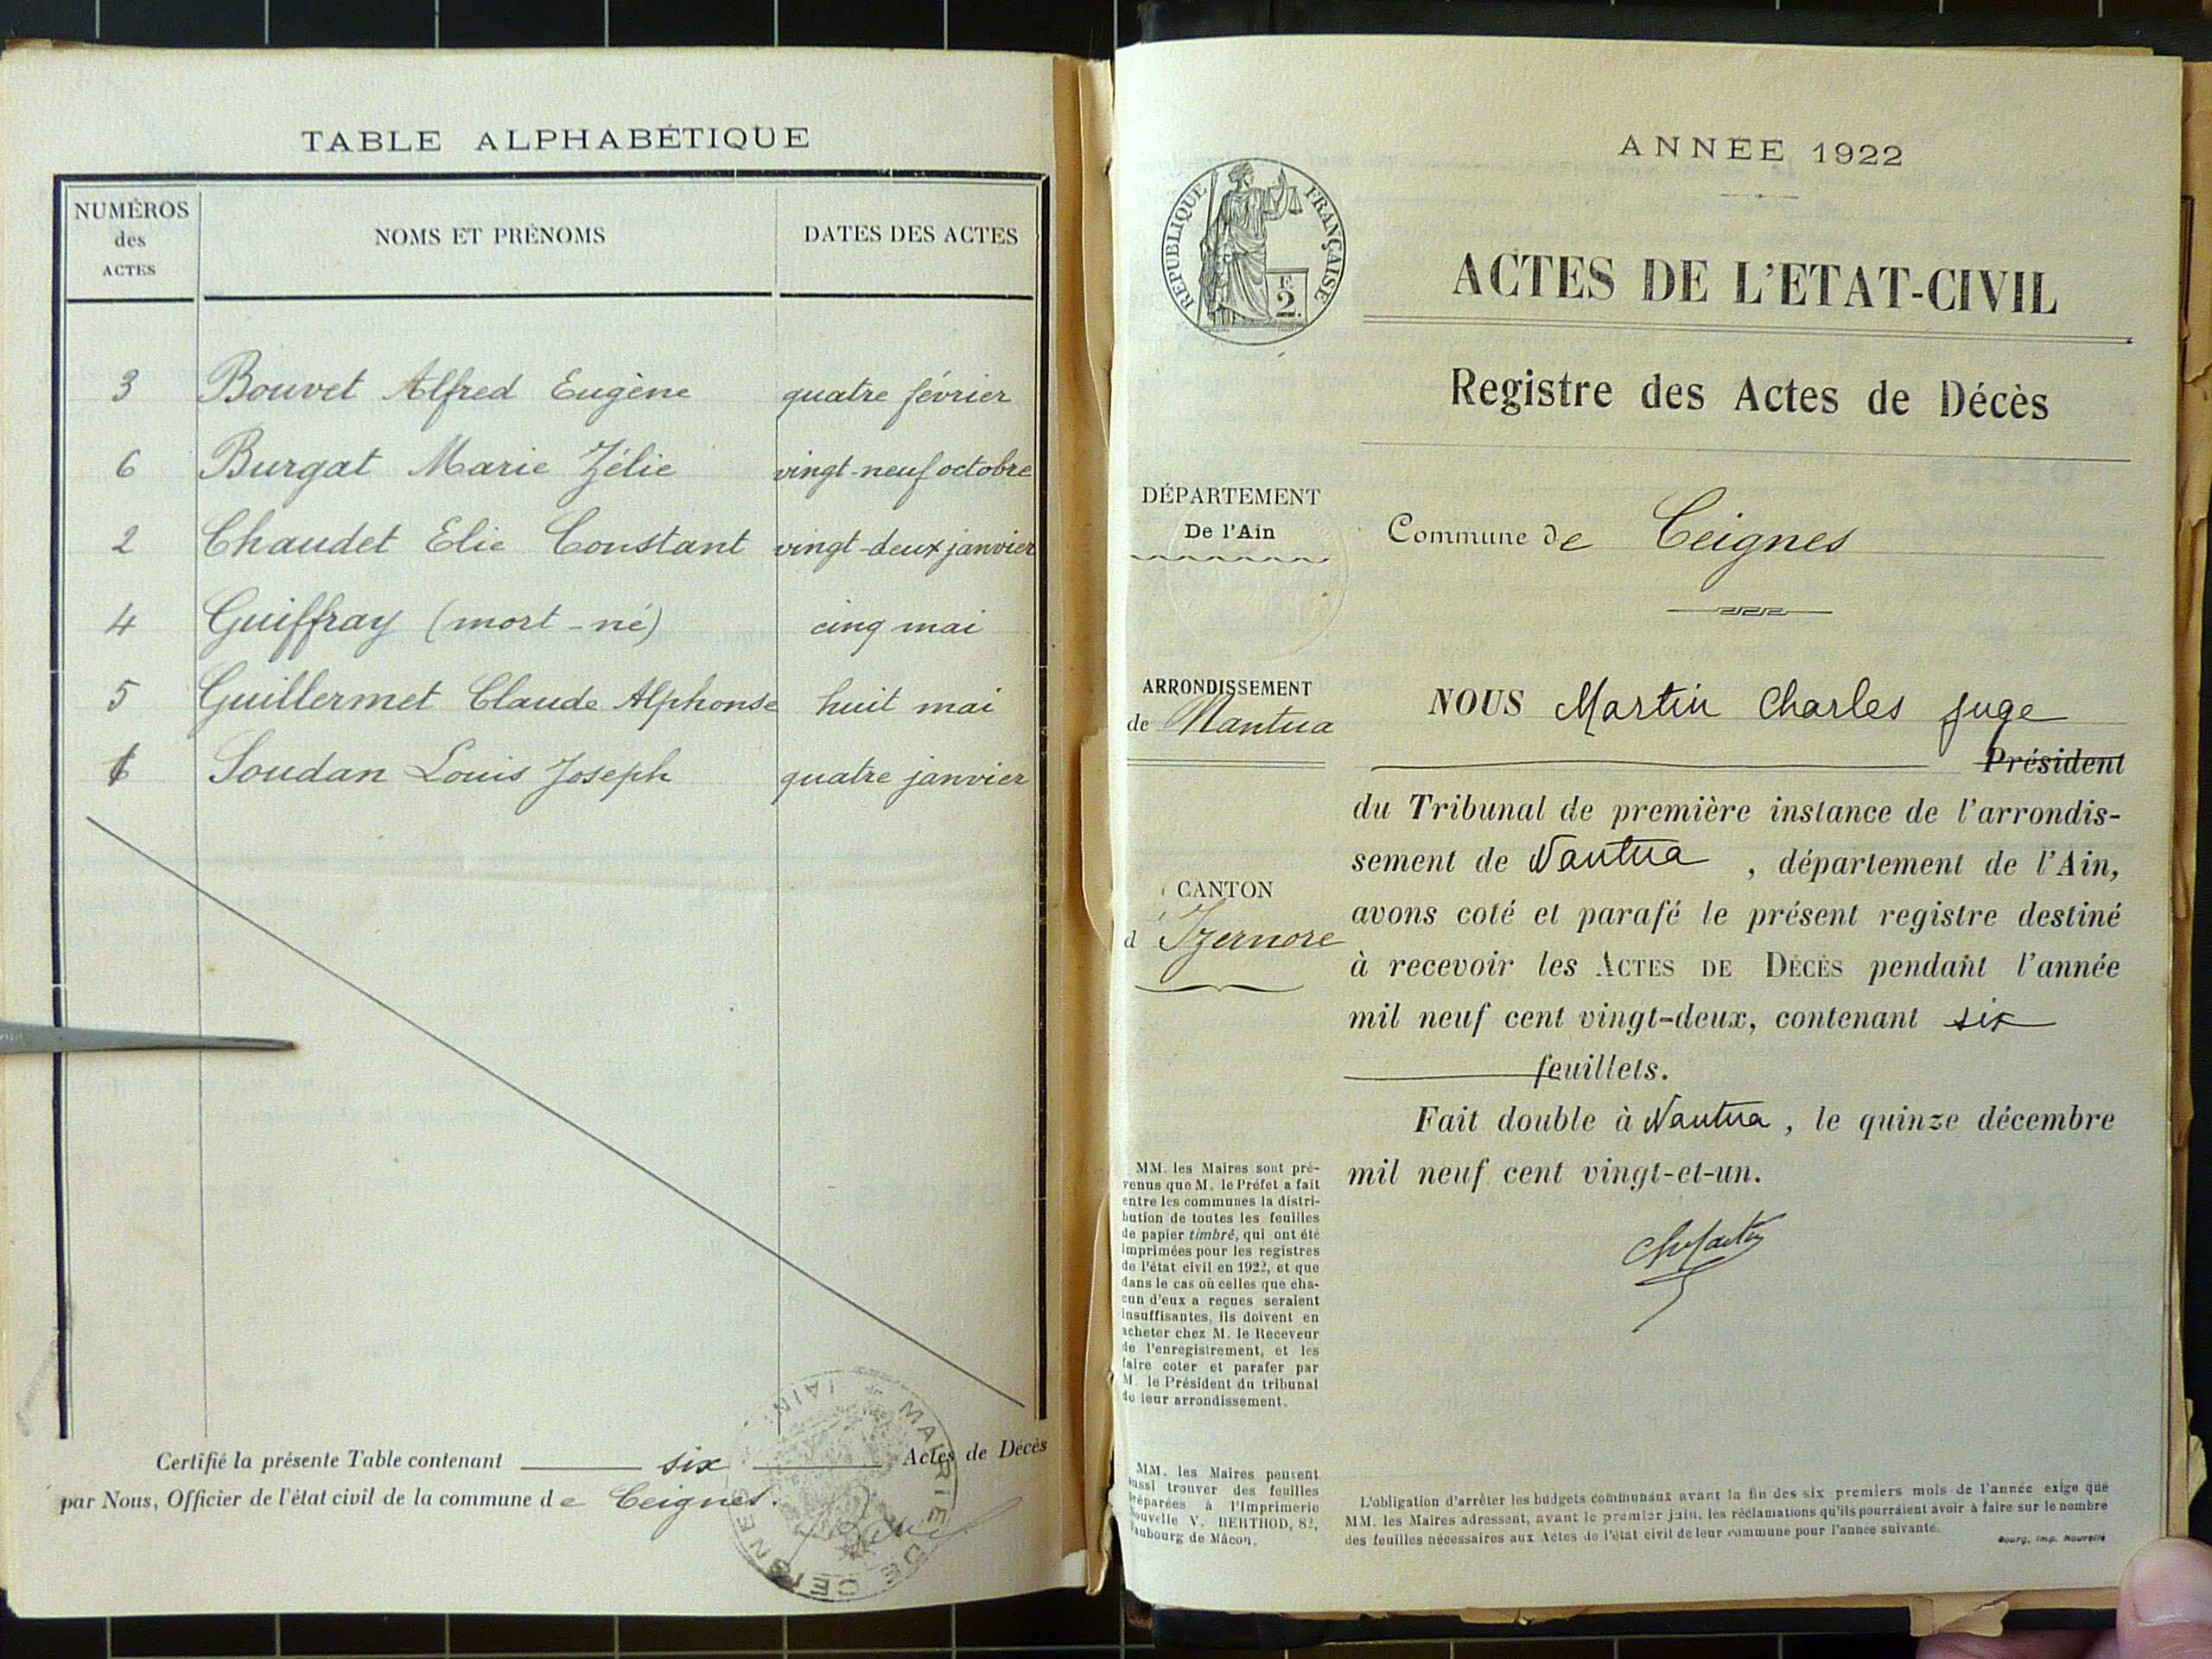 TABLE ALPHABÉTIQUE
NUMÉROS
des
ACTES
NOMS ET PRÉNOMS
DATES DES ACTES
3 Bouvet Alfred Eugène quatre février
6 Burgat Marie Zélie vingt-neuf octobre
2 Chaudet Elie Constant vingt-deux janvier
4 Guiffray (mort-né) cinq mai
5 Guillermet Claude Alphonse huit mai
1 Soudan Louis Joseph quatre janvier
Certifié la présente Table contenant six Actes de Décès
par Nous, Officier de l'état civil de la commune de Ceignes.
MAIRIE DE CEIGNES (AIN)
ANNÉE 1922
RÉPUBLIQUE FRANÇAISE
2 F.
ACTES DE L'ETAT-CIVIL
Registre des Actes de Décès
DÉPARTEMENT
De l'Ain
Commune de Ceignes
ARRONDISSEMENT
de Nantua
CANTON
d'Izernore
NOUS Martin Charles juge
Président
du Tribunal de première instance de l'arrondis-
sement de Nantua, département de l'Ain,
avons coté et parafé le présent registre destiné
à recevoir les ACTES DE DÉCÈS pendant l'année
mil neuf cent vingt-deux, contenant six
feuillets.
Fait double à Nantua, le quinze décembre
mil neuf cent vingt-et-un.
Ch Martin
MM. les Maires sont pré-
venus que M. le Préfet a fait
entre les communes la distri-
bution de toutes les feuilles
de papier timbré, qui ont été
imprimées pour les registres
de l'état civil en 1922, et que
dans le cas où celles que cha-
cun d'eux a reçues seraient
insuffisantes, ils doivent en
acheter chez M. le Receveur
de l'enregistrement, et les
faire coter et parafer par
M. le Président du tribunal
de leur arrondissement.
MM. les Maires peuvent
aussi trouver des feuilles
préparées à l'Imprimerie
Nouvelle V. BERTHOD, 82,
faubourg de Mâcon.
L'obligation d'arrêter les budgets communaux avant la fin des six premiers mois de l'année exige que
MM. les Maires adressent, avant le premier juin, les réclamations qu'ils pourraient avoir à faire sur le nombre
des feuilles nécessaires aux Actes de l'état civil de leur commune pour l'année suivante.
Bourg, Imp. Nouvelle